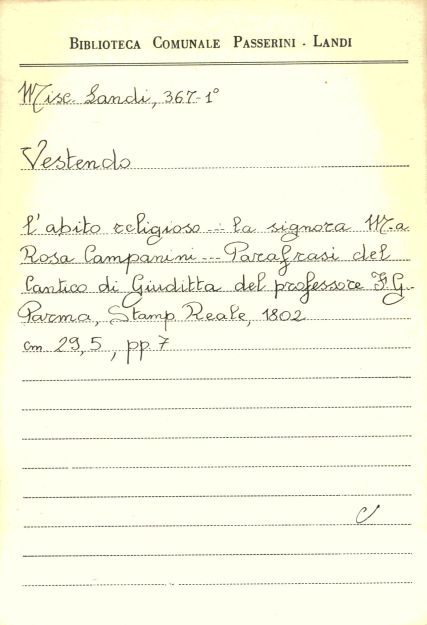 BIBLIOTECA COMUNALE PASSERINI - LANDI
Misc. Landi, 367-1°
Vestendo
l'abito religioso --- la signora M.a
Rosa Campanini --- Parafrasi del
Cantico di Giuditta del professore F.G.
Parma, Stamp Reale, 1802
cm 29,5, pp 7